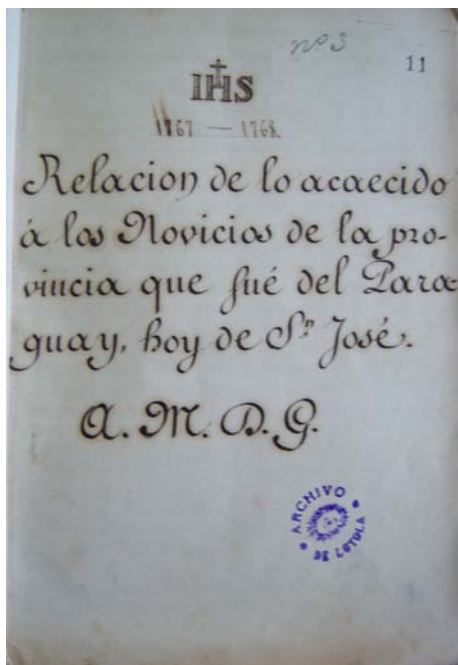 nº 3
11
IHS
1767 — 1768.
Relacion de lo acaecido
á los Novicios de la pro-
vincia que fué del Para-
guay, hoy de Sⁿ José.
A. M. D. G.
ARCHIVO
DE LOYOLA